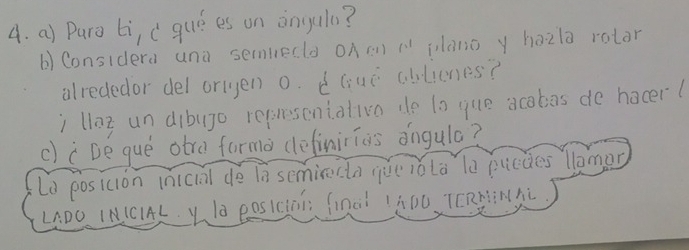 4. a) Para ti, ¿ qué es un ángulo?
b) Considera una semirrecta OA en el plano y hazla rotar
alrededor del origen O. ¿ Qué obtienes?
¡ Haz un dibujo representativo de lo que acabas de hacer!
c) ¿ De qué otra forma definirías ángulo?
La posición inicial de la semirecta que rota la puedes llamar
LADO INICIAL y la posición final LADO TERMINAL.